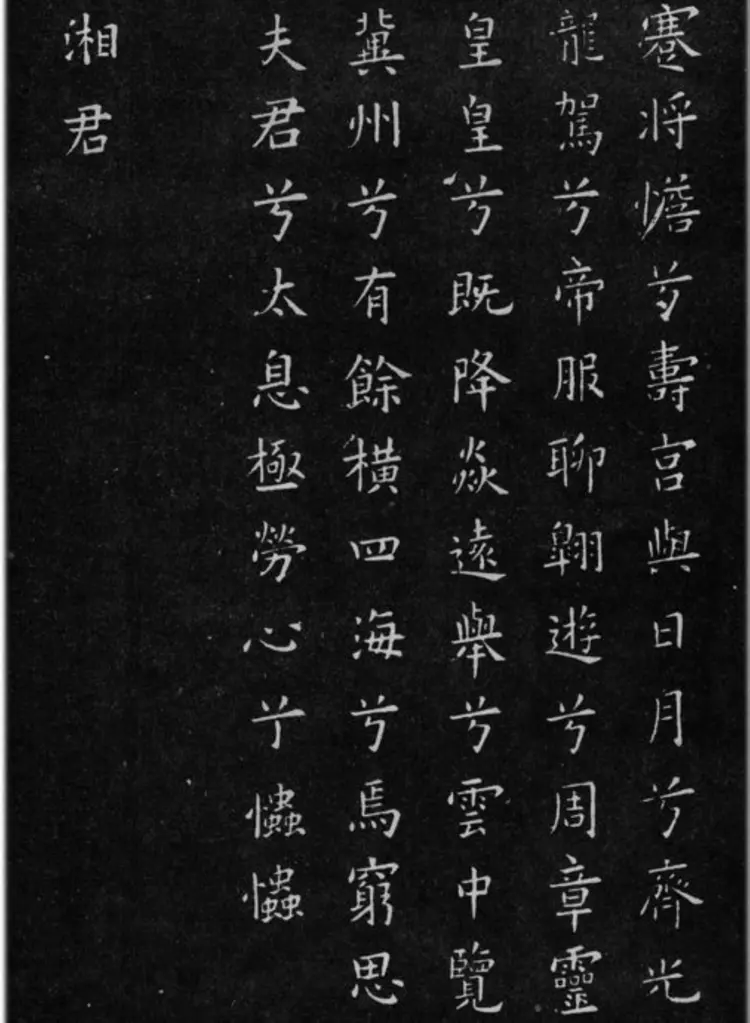 蹇将憺兮壽宮與日月兮齊光
龍駕兮帝服聊翱遊兮周章靈
皇皇兮既降焱遠舉兮雲中覽
冀州兮有餘橫四海兮焉窮思
夫君兮太息極勞心兮忡忡
湘君